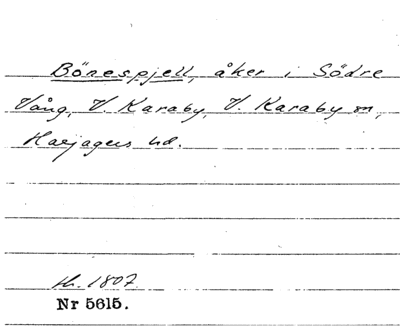 Bönespjell, åker i Södre
Vång, V. Karaby, V. Karaby sn,
Harjagers hd.
h. 1807
Nr 5615.